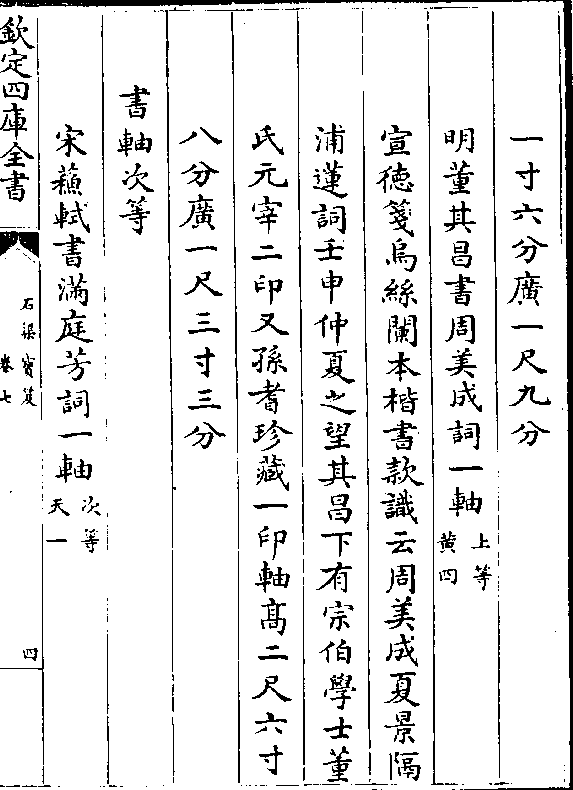 一寸六分廣一尺九分
明董其昌書周美成詞一軸 上等 黄四
宣徳箋烏絲闌本楷書款識云周美成夏景隔
浦蓮詞壬申仲夏之望其昌下有宗伯學士董
氏元宰二印又孫耆珍藏一印軸髙二尺六寸
八分廣一尺三寸三分
書軸次等
宋蘇軾書滿庭芳詞一軸 次等 天一
欽定四庫全書
石渠寶笈
卷七
四